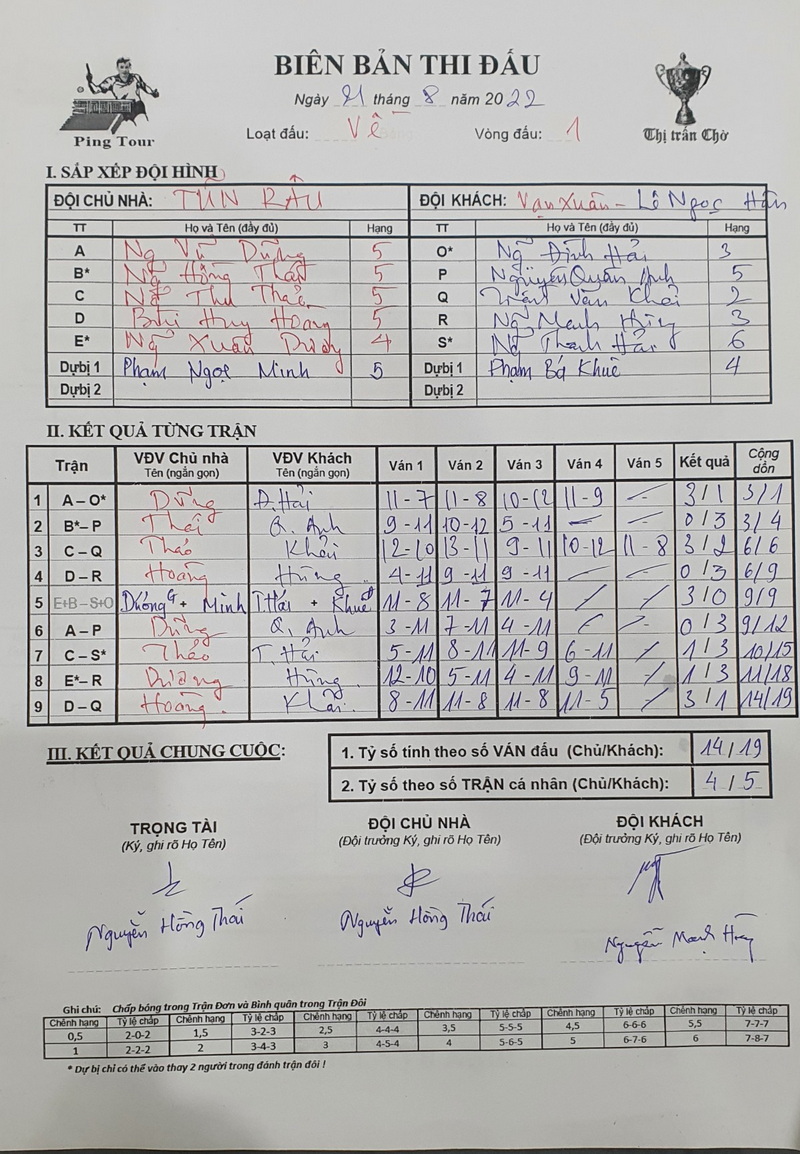 BIÊN BẢN THI ĐẤU
Ngày 21 tháng 8 năm 2022
Loạt đấu: Về Vòng đấu: 1
Ping Tour
Thị trấn Chờ
I. SẮP XẾP ĐỘI HÌNH
ĐỘI CHỦ NHÀ: TUẤN RÂU ĐỘI KHÁCH: Vạn Xuân - Lê Ngọc Hân
TT Họ và Tên (đầy đủ) Hạng TT Họ và Tên (đầy đủ) Hạng
A Ng Vũ Dũng 5 O* Ng Đình Hải 3
B* Ng Hồng Thái 5 P Nguyễn Quân Anh 5
C Ng Thu Thảo 5 Q Trần Văn Khải 2
D Bùi Huy Hoàng 5 R Ng Mạnh Hùng 3
E* Ng Xuân Dương 4 S* Ng Thanh Hải 6
Dựbị 1 Phạm Ngọc Minh 5 Dựbị 1 Phạm Bá Khuê 4
Dựbị 2 Dựbị 2
II. KẾT QUẢ TỪNG TRẬN
Trận VĐV Chủ nhà Tên (ngắn gọn) VĐV Khách Tên (ngắn gọn) Ván 1 Ván 2 Ván 3 Ván 4 Ván 5 Kết quả Cộng dồn
1 A – O* Dũng Đ. Hải 11-7 11-8 10-12 11-9 / 3/1 3/1
2 B* – P Thái Q. Anh 9-11 10-12 5-11 / / 0/3 3/4
3 C – Q Thảo Khải 12-10 13-11 9-11 10-12 11-8 3/2 6/6
4 D – R Hoàng Hùng 4-11 9-11 9-11 / / 0/3 6/9
5 E+B – S+O Dương + Minh T.Hải + Khuê 11-8 11-7 11-4 / / 3/0 9/9
6 A – P Dũng Q. Anh 3-11 7-11 4-11 / / 0/3 9/12
7 C – S* Thảo T. Hải 5-11 8-11 11-9 6-11 / 1/3 10/15
8 E* – R Dương Hùng 12-10 5-11 4-11 9-11 / 1/3 11/18
9 D – Q Hoàng Khải 8-11 11-8 11-8 11-5 / 3/1 14/19
III. KẾT QUẢ CHUNG CUỘC:
1. Tỷ số tính theo số VÁN đấu (Chủ/Khách): 14/19
2. Tỷ số theo số TRẬN cá nhân (Chủ/Khách): 4/5
TRỌNG TÀI ĐỘI CHỦ NHÀ ĐỘI KHÁCH
(Ký, ghi rõ Họ Tên) (Đội trưởng Ký, ghi rõ Họ Tên) (Đội trưởng Ký, ghi rõ Họ Tên)
Nguyễn Hồng Thái Nguyễn Hồng Thái Nguyễn Mạnh Hùng
Ghi chú: Chấp bóng trong Trận Đơn và Bình quân trong Trận Đôi
Chênh hạng Tỷ lệ chấp Chênh hạng Tỷ lệ chấp Chênh hạng Tỷ lệ chấp Chênh hạng Tỷ lệ chấp Chênh hạng Tỷ lệ chấp Chênh hạng Tỷ lệ chấp
0,5 2-0-2 1,5 3-2-3 2,5 4-4-4 3,5 5-5-5 4,5 6-6-6 5,5 7-7-7
1 2-2-2 2 3-4-3 3 4-5-4 4 5-6-5 5 6-7-6 6 7-8-7
* Dự bị chỉ có thể vào thay 2 người trong đánh trận đôi !